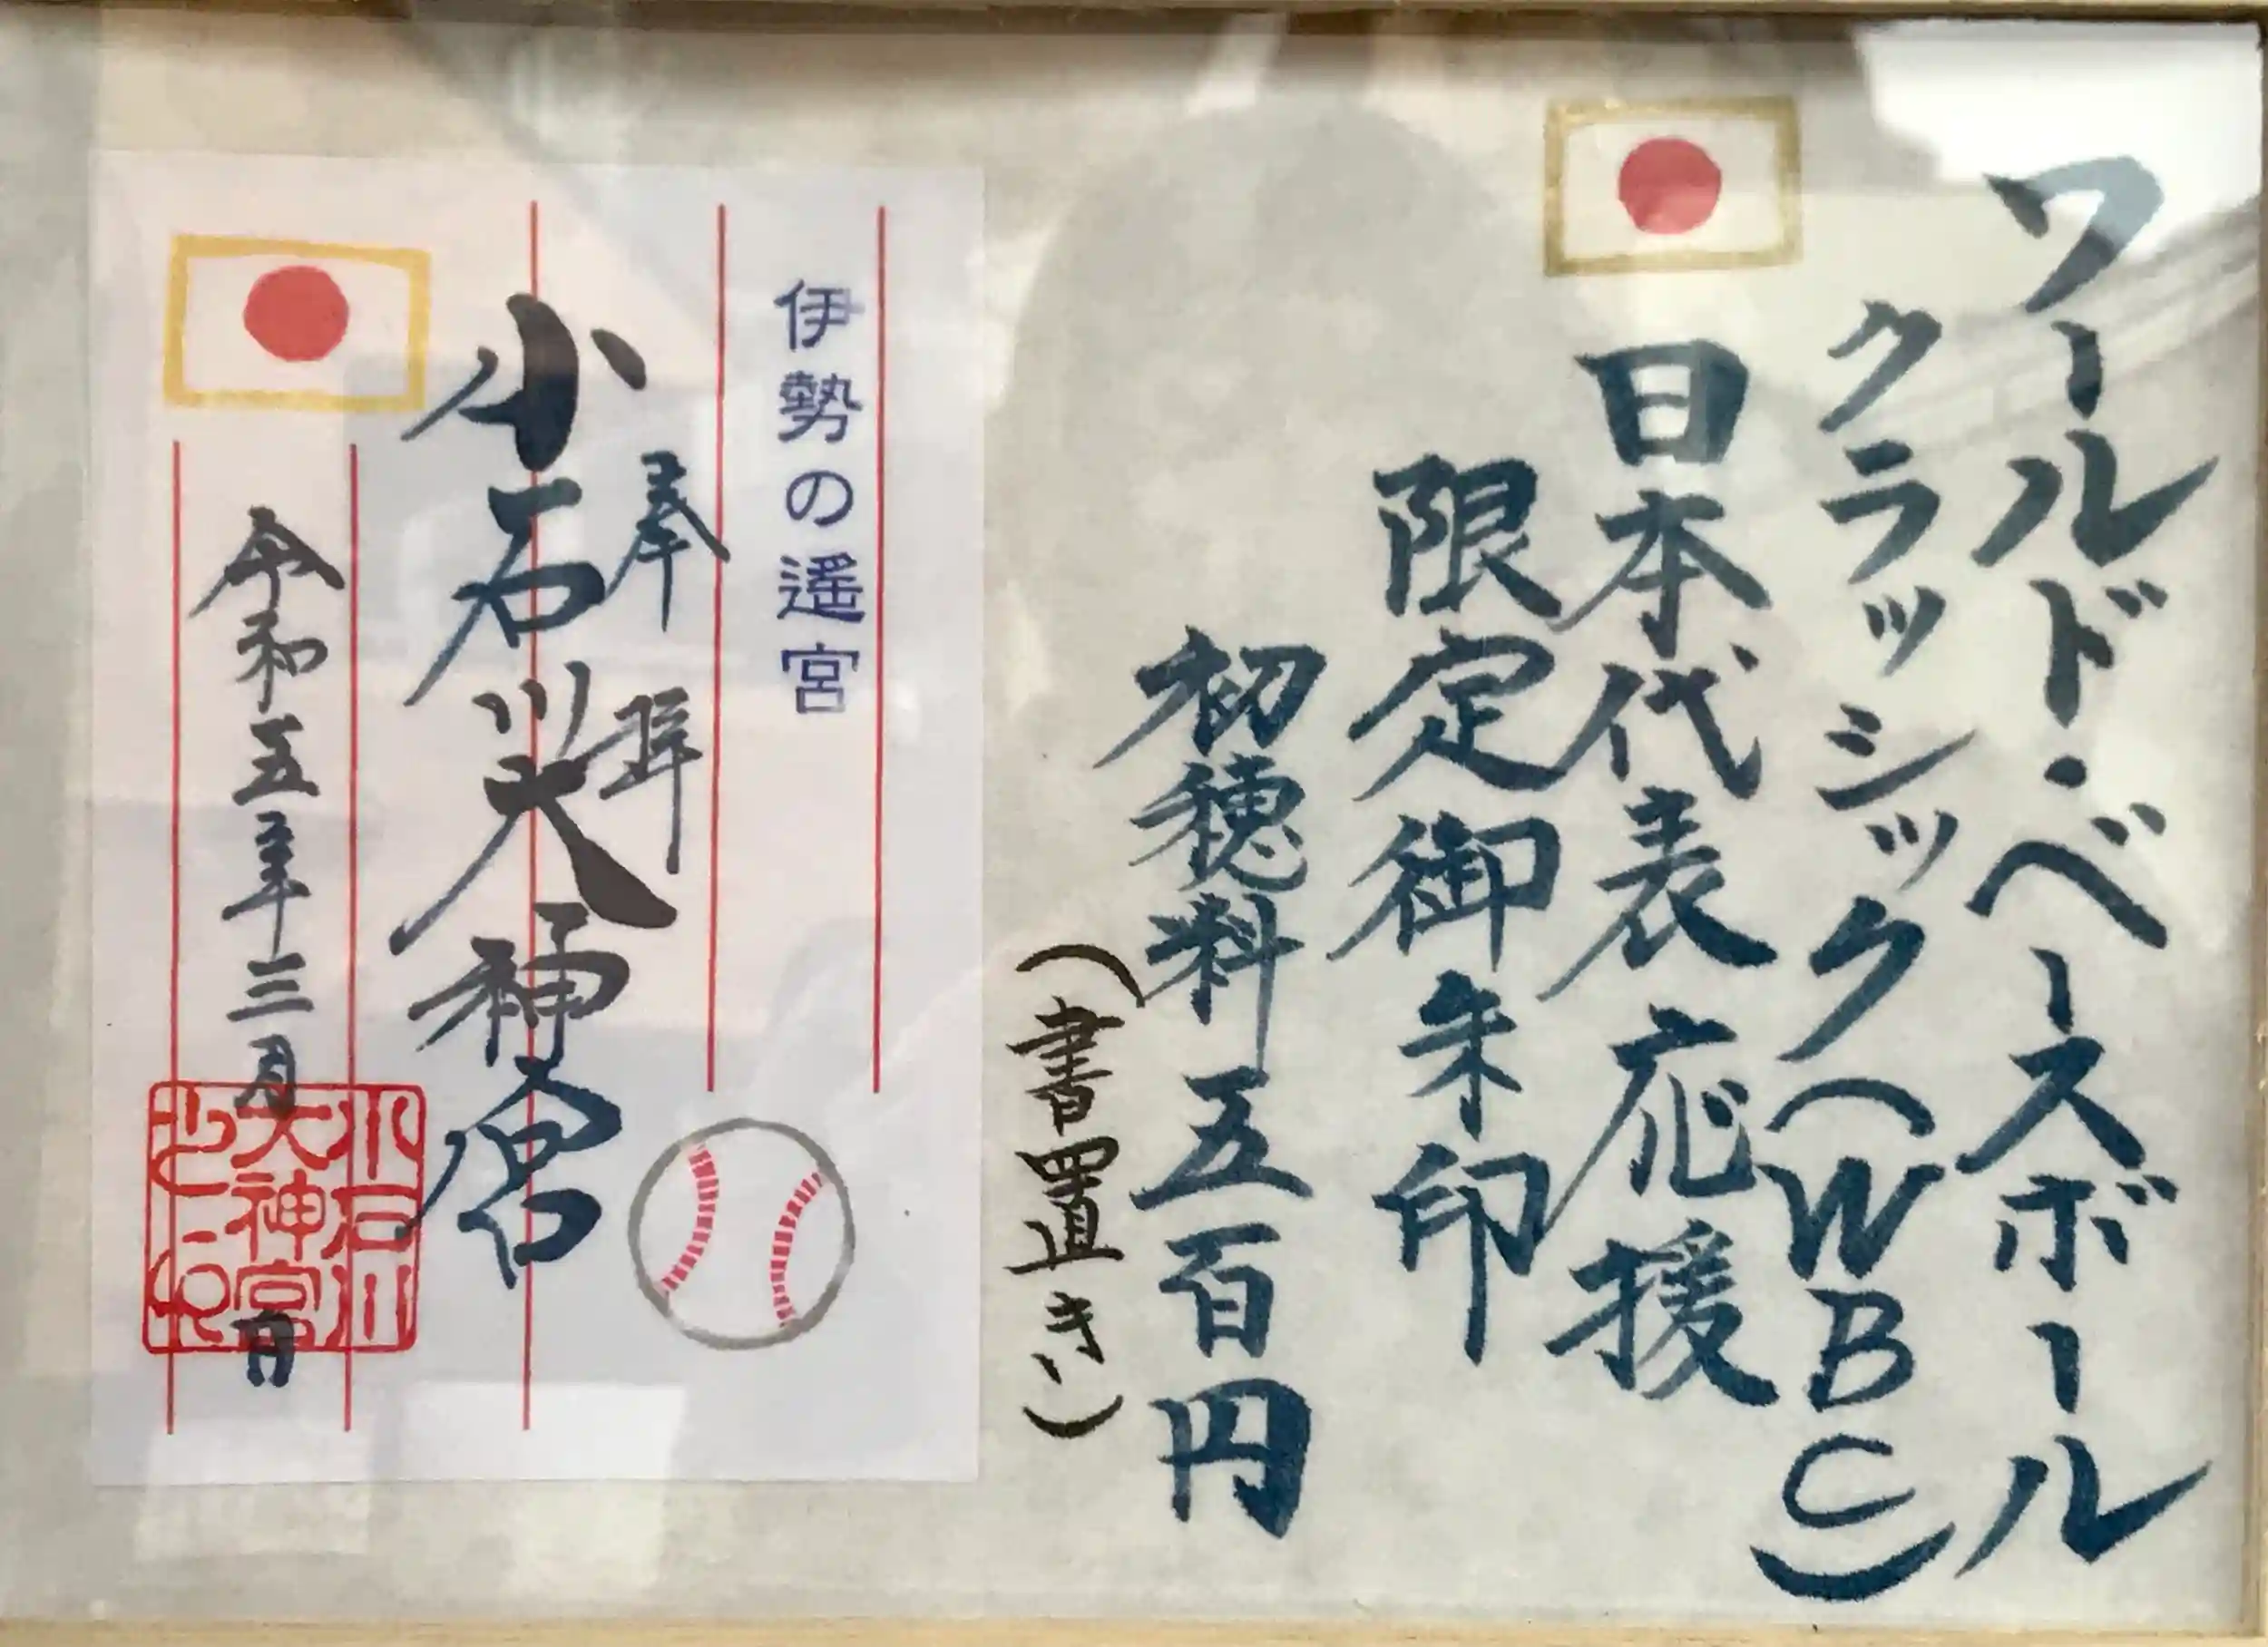 ワールド・ベースボール
クラッシック(WBC)
日本代表応援
限定御朱印
初穂料五百円
(書置き)
伊勢の遥宮
奉拝
小石川大神宮
令和五年三月 日
小石川
大神宮